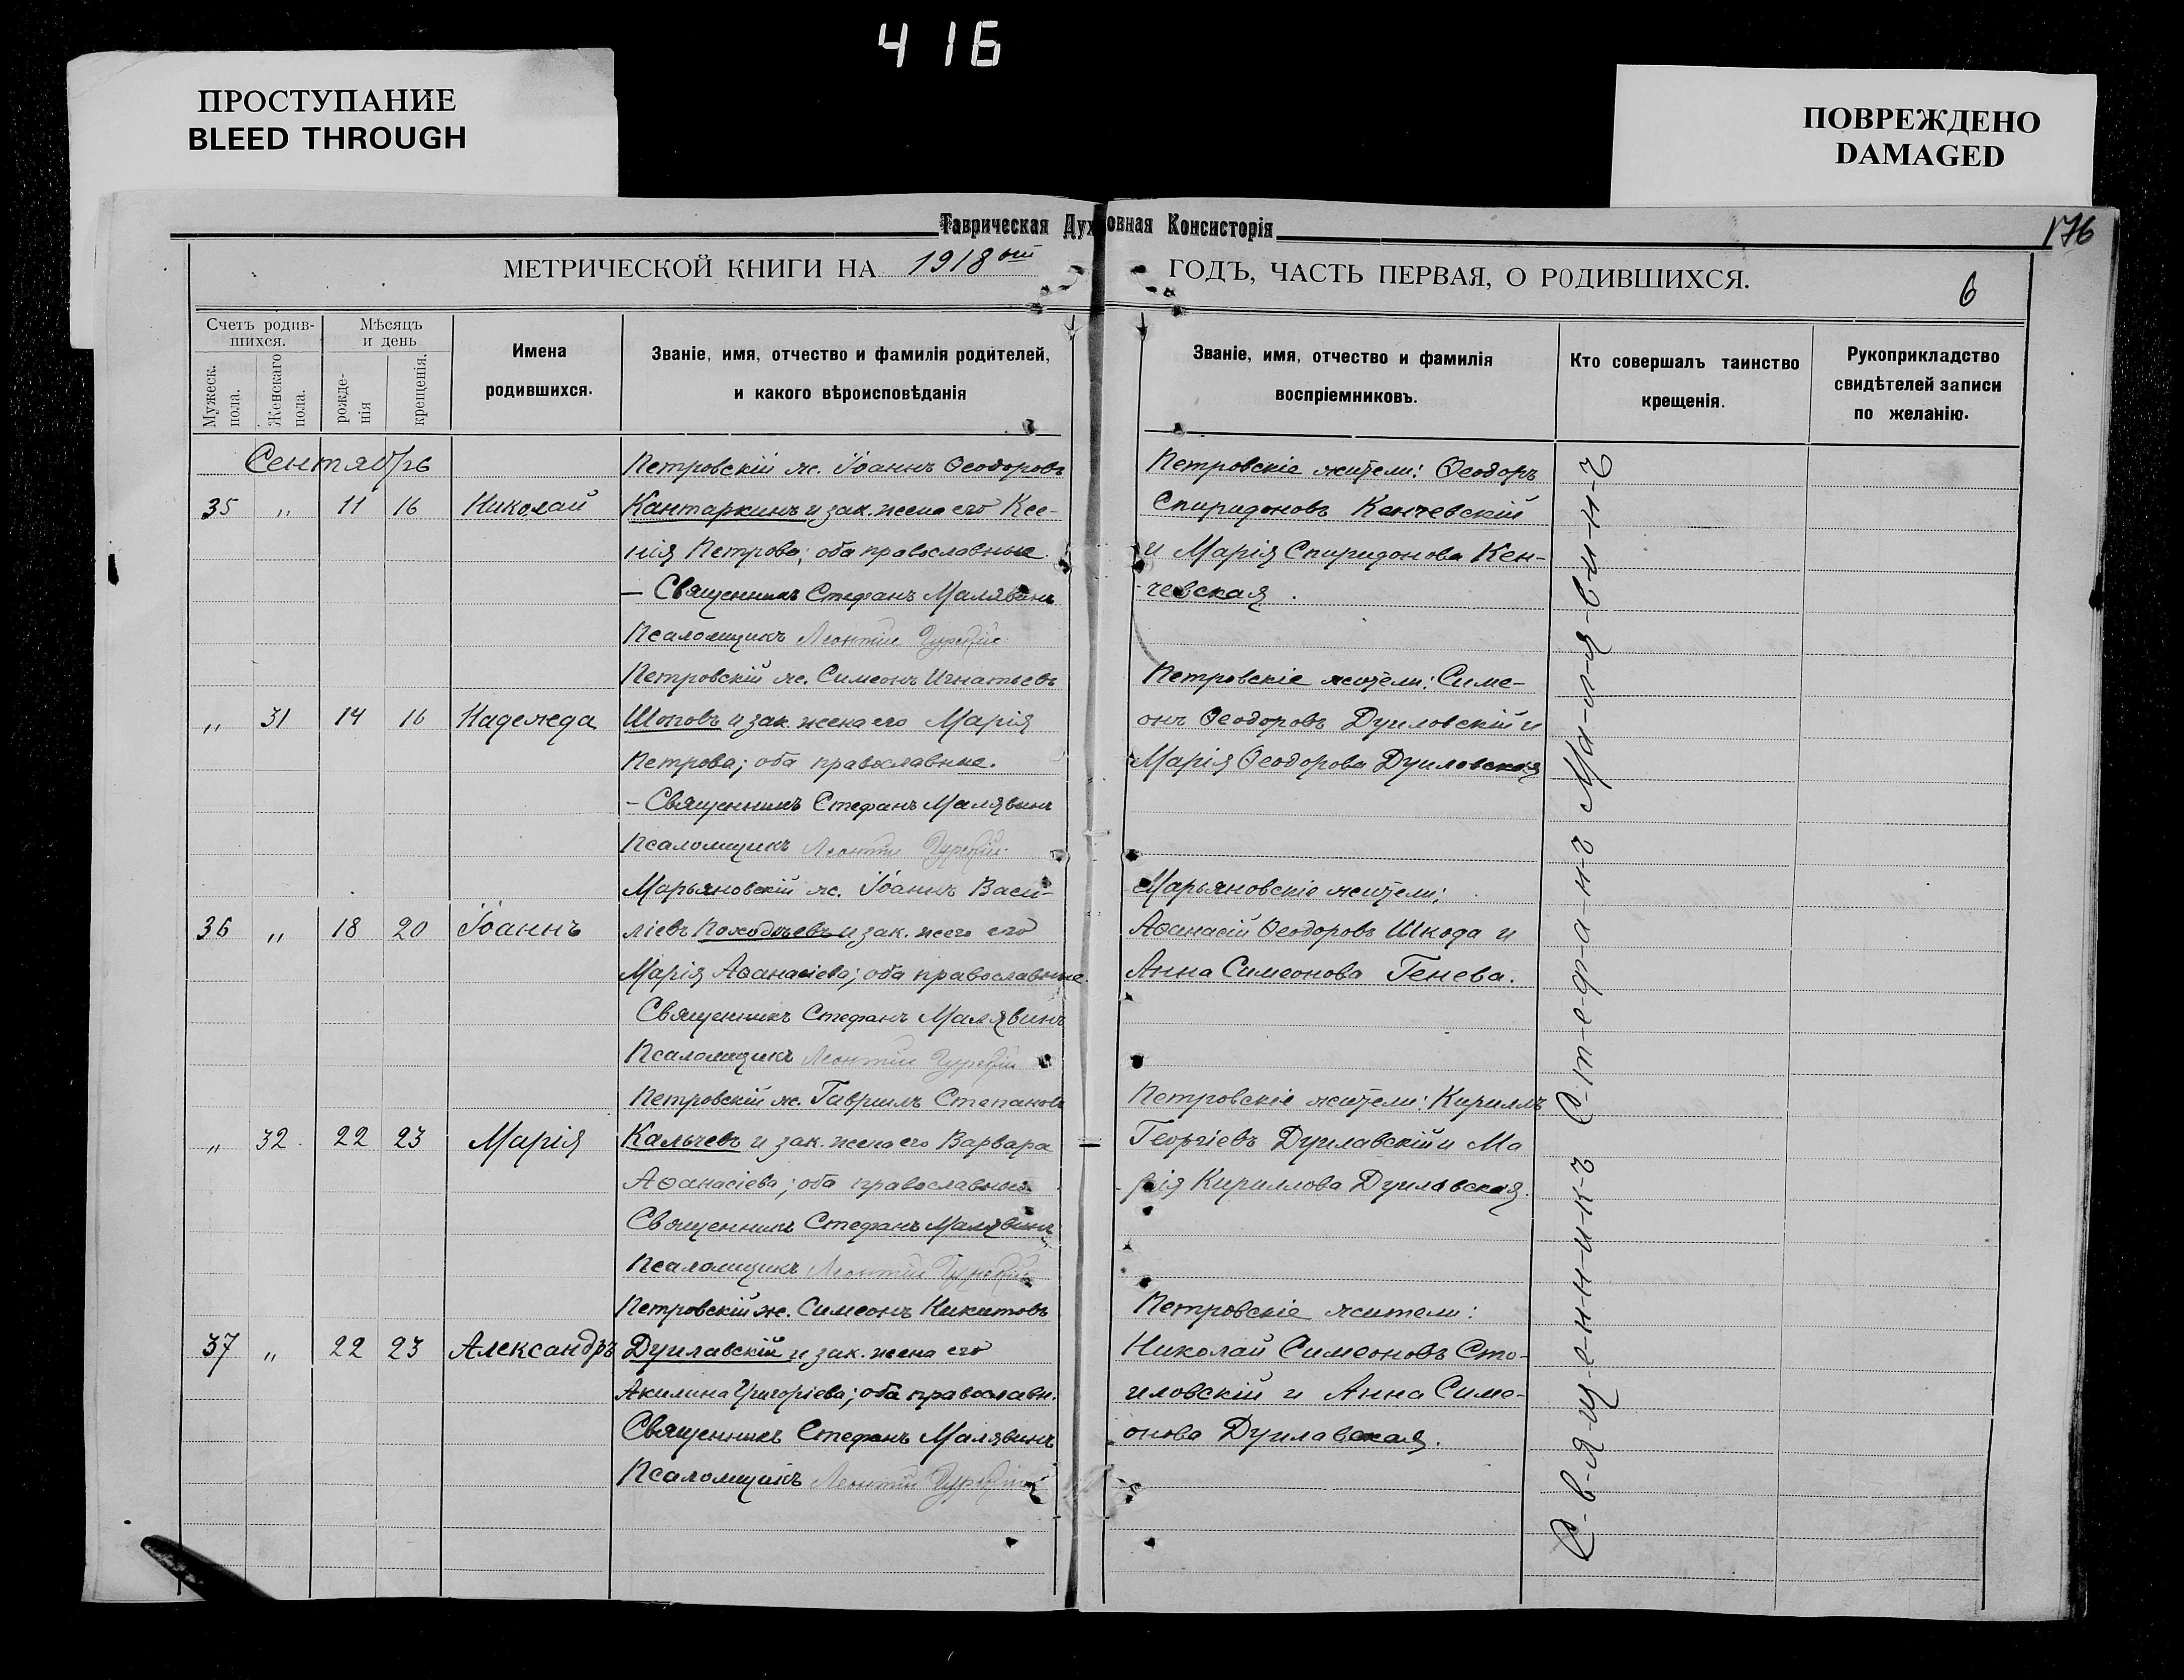 416
ПРОСТУПАНИЕ
BLEED THROUGH
ПОВРЕЖДЕНО
DAMAGED
Таврическая Духовная Консисторія
176
МЕТРИЧЕСКОЙ КНИГИ НА 1918 ый ГОДЪ, ЧАСТЬ ПЕРВАЯ, О РОДИВШИХСЯ.
6
Счетъ родив-
шихся.
Мужеск.
пола.
Женскаго
пола.
Мѣсяцъ
и день
рожде-
нія
крещенія.
Имена
родившихся.
Званіе, имя, отчество и фамилія родителей,
и какого вѣроисповѣданія
Званіе, имя, отчество и фамилія
воспріемниковъ.
Кто совершалъ таинство
крещенія.
Рукоприкладство
свидѣтелей записи
по желанію.
Сентябрь
35 " 11 16 Николай
Петровскій ж. Іоаннъ Ѳеодоровъ
Кантаркинъ и зак. жена его Ксе-
нія Петрова; оба православные
— Священникъ Стефанъ Малявинъ
Псаломщикъ Леонтій
Петровскіе жители: Ѳеодоръ
Спиридоновъ Кенчевскій
и Марія Спиридонова Кен-
чевская.
" 31 14 16 Надежда
Петровскій ж. Симеонъ Игнатьевъ
Шоповъ и зак. жена его Марія
Петрова; оба православные.
— Священникъ Стефанъ Малявинъ
Псаломщикъ Леонтій
Петровскіе жители: Симе-
онъ Ѳеодоровъ Дуиловскій и
Марія Ѳеодорова Дуиловская
36 " 18 20 Іоаннъ
Марьяновскій ж. Іоаннъ Васи-
ліевъ и зак. жена его
Марія Аѳанасіева; оба православные.
Священникъ Стефанъ Малявинъ
Псаломщикъ Леонтій
Марьяновскіе жители:
Аѳанасій Ѳеодоровъ Шкода и
Анна Симеонова Генева.
" 32 22 23 Марія
Петровскій ж. Гавриилъ Степановъ
Кальчевъ и зак. жена его Варвара
Аѳанасіева; оба православные
Священникъ Стефанъ Малявинъ
Псаломщикъ Леонтій
Петровскіе жители: Кириллъ
Георгіевъ Дуилавскій и Ма
рія Кириллова Дуилавская.
37 " 22 23 Александръ
Петровскій ж. Симеонъ Никитовъ
Дуилавскій и зак. жена его
Акилина Григоріева; оба православн.
Священникъ Стефанъ Малявинъ
Псаломщикъ Леонтій
Петровскіе жители:
Николай Симеоновъ Сто-
иловскій и Анна Симе-
онова Дуилавская.
С-в-я-щ-е-н-н-и-к-ъ С-т-е-ф-а-н-ъ Ма-л-я-в-и-н-ъ